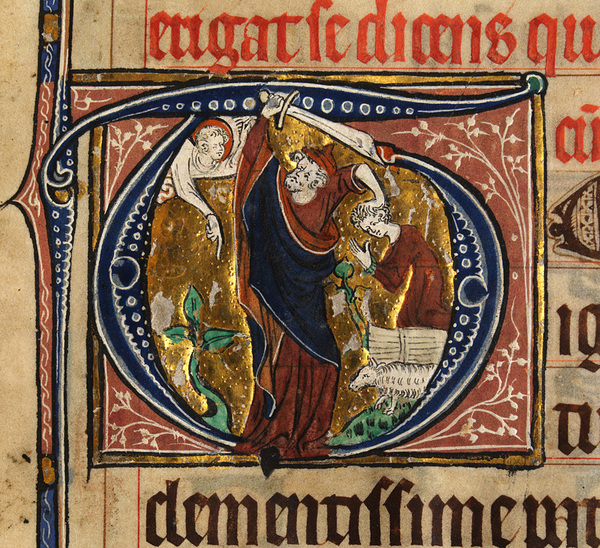 erigat se dicens qu
T
ig
clementissime pat